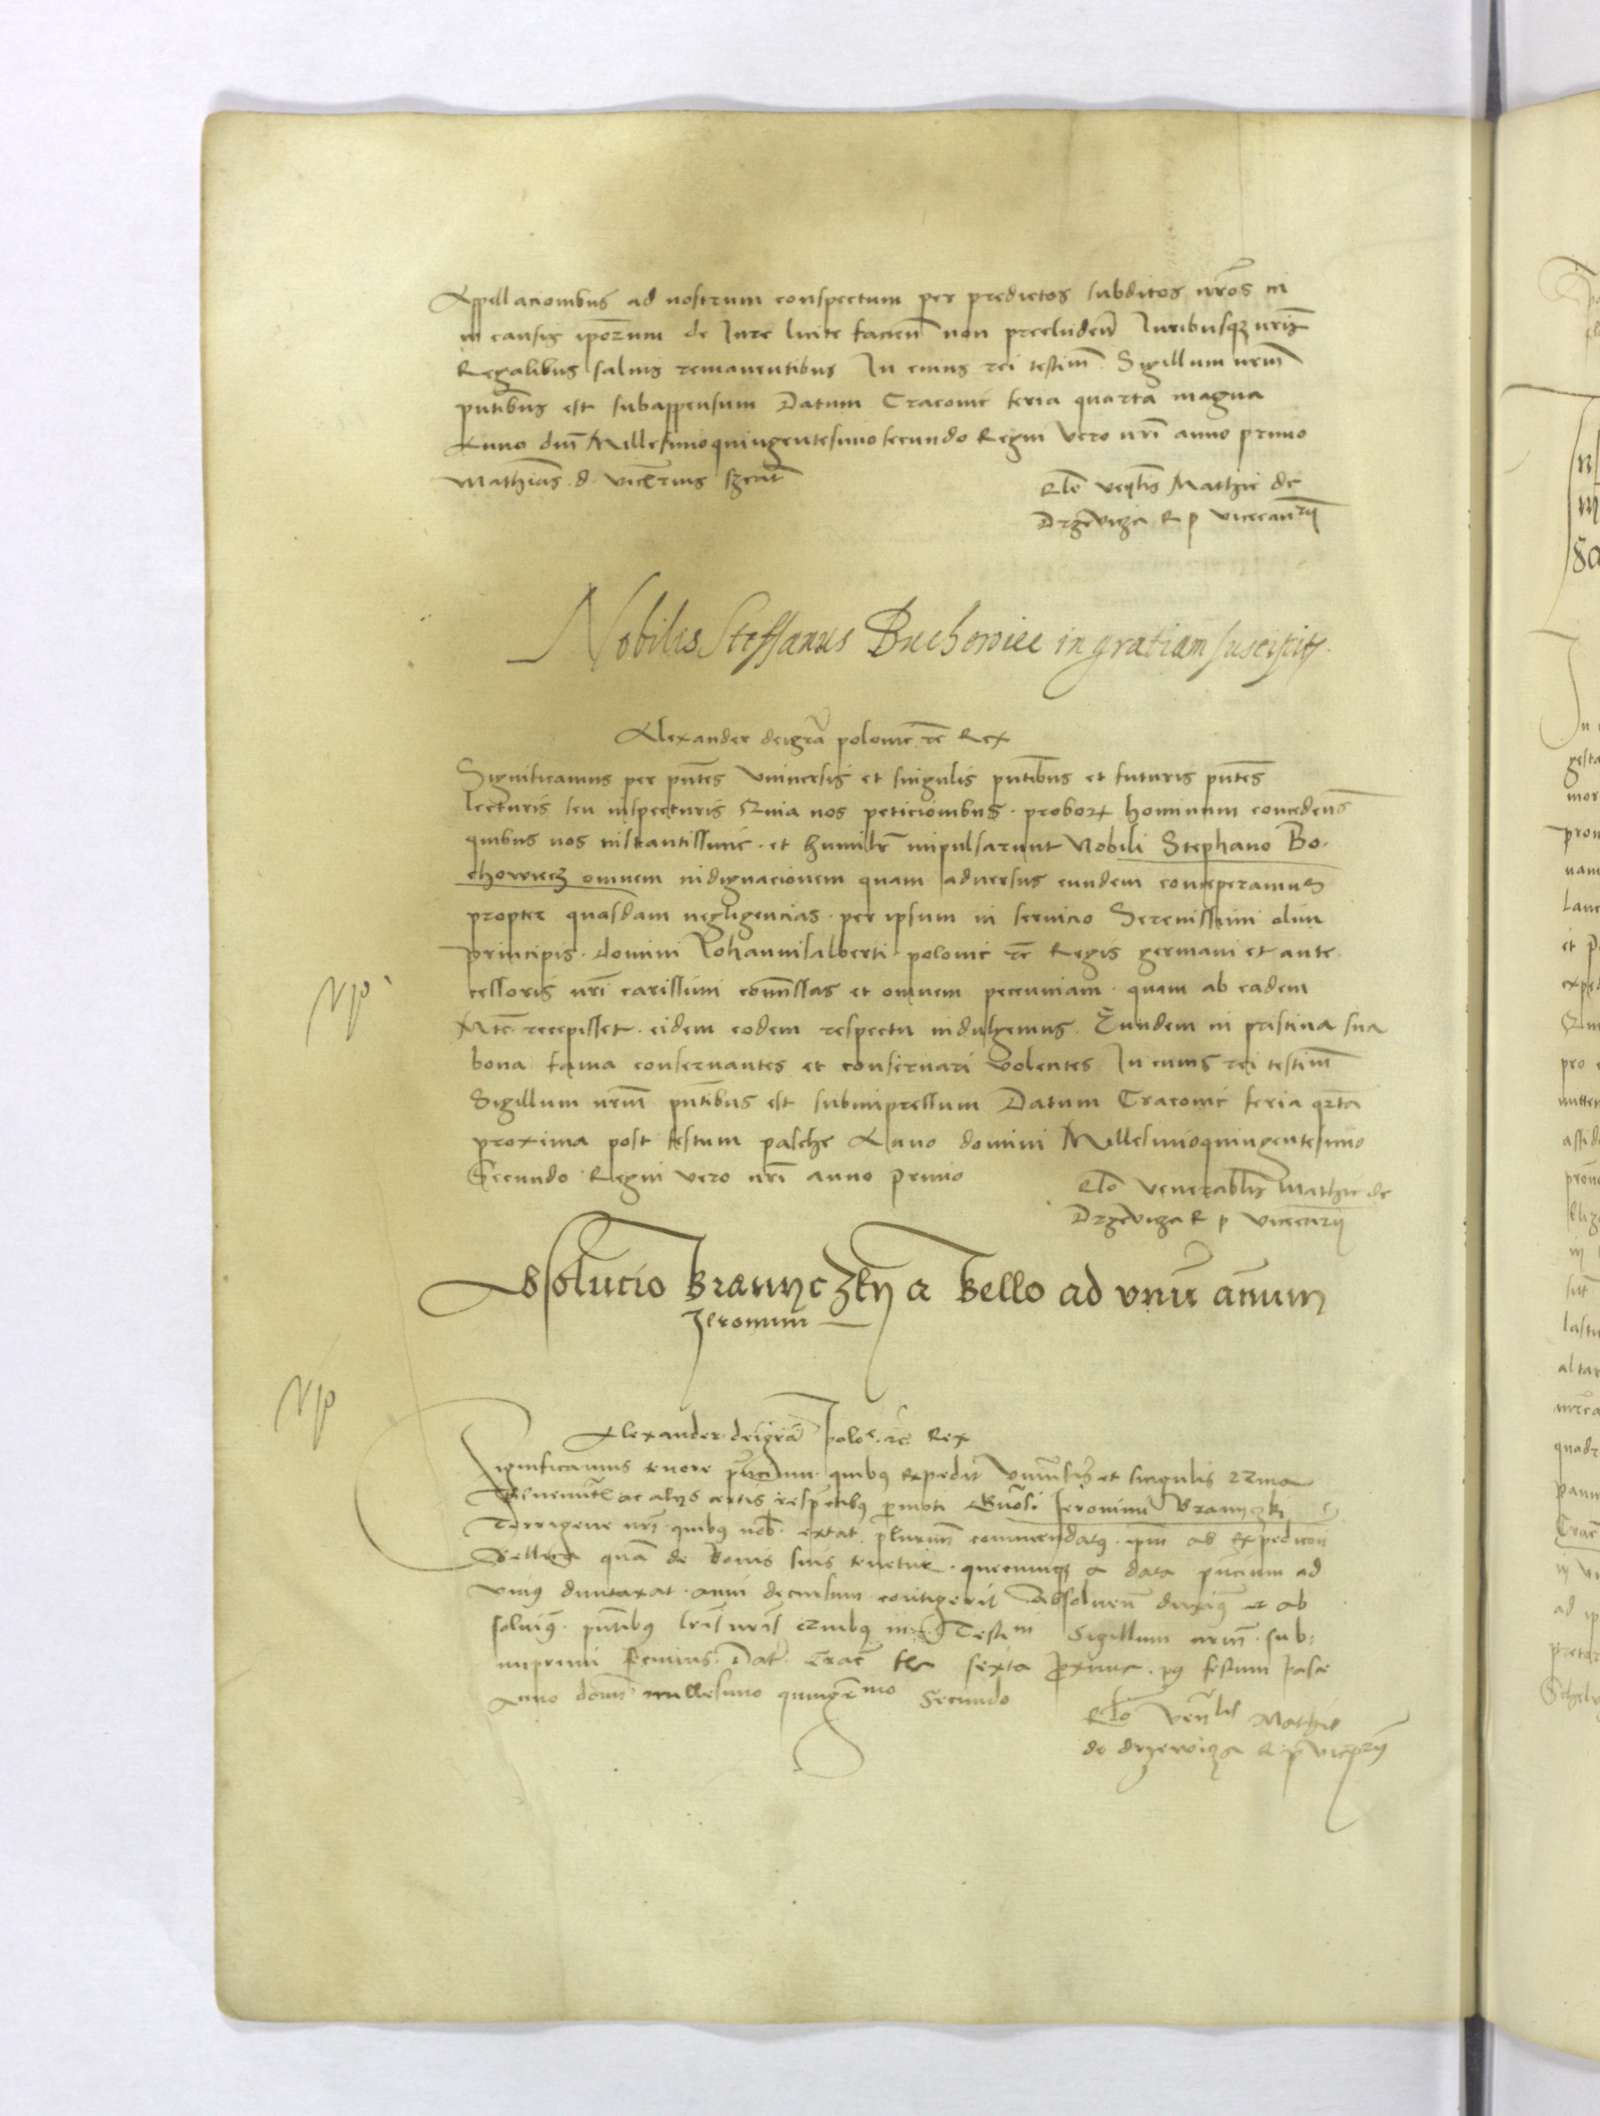 Appellacionibus ad nostrum conspectum per predictos subditos nr̄os in
in causis ip̄orum de Iure licite faciēn non precludēn Iuribusqꝫ nrīs
Regalibus salvis remanentibus In cuius rei testim̄ Sigillum nr̄m
pn̄tibus est subappensum Datum Cracovie feria quarta magna
Anno dn̄i Millesimoquingentesimosecundo Regni vero nr̄i anno primo
Mathias d. vicērius
Rlo ven̄lis Mathie de
Drzevicza R p vicecan̄rij
Nobilis Steffanus Buchowiec in gratiam suscipit~
Alexander deigrā polonie rc̄ Rex
Significamus per pn̄tes Vniversis et singulis pn̄tibus et futuris pn̄tes
lecturis seu inspecturis Quia nos peticionibus proborꝫ hominum concedens̄
quibus nos instantissime et humilr̄ impulsarunt Nobili Stephano Bo
chowiecz omnem indignacionem quam adversus eundem conceperamus
propter quasdam negligencias per ipsum in servicio Serenissimi olim
principis domini Iohannisalberti polonie rc̄ Regis germani et ante
cessoris nr̄i carissimi com̄issas et omnem pecuniam quam ab eadem
Mte recepisset eidem eodem respectu indulgemus Eundem in pristina sua
bona fama conservantes et conservari volentes In cuius rei testim̄
Sigillum nr̄m pn̄tibus est subimpressum Datum Cracovie feria qr̄ta
proxima post festum pasche Anno domini Millesimoquingentesimo
Secundo Regni vero nr̄i anno primo
Rlo venerablis Mathie de
Drzevicza R p vicecan̄rij
Absolucio Branyczky a bello ad vnū annum
Ieronimi
Alexander deigrā polo. rc̄ Rex
Significamus tenore pn̄cium quibus expedit Vniversis et singulis Quia
ac alijs certis respectibus permoti Gn̄osi Ieronimi Branyczki
Terrigene nr̄i quibus nob̄ extat plurim̄ commendatus ip̄m ab expedicōni
Bellica quā de bonis suis tenetur quecunqꝫ a data pn̄cium ad
vnius duntaxat anni decursum contigerit Absolven̄ duxim̄ et ab
solvim̄ pn̄tibus lrīs nrīs Quibus in Testim Sigillum nr̄m sub
imprimi fecimus Dat Crac̄ fer sexta proxima p9 festum pasce
Anno domī millesimo quingēmo Secundo
Rlo Ven̄lis Mathie
de drzewicza R p vicecan̄rij
NP
NP